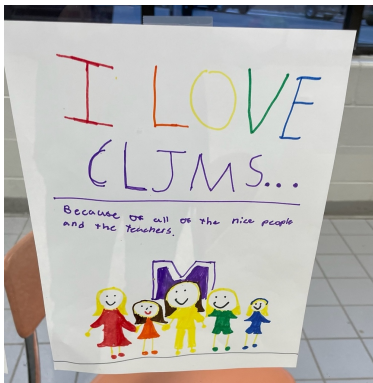 I LOVE
CLJMS...
Because of all of the nice people
and the teachers.
M